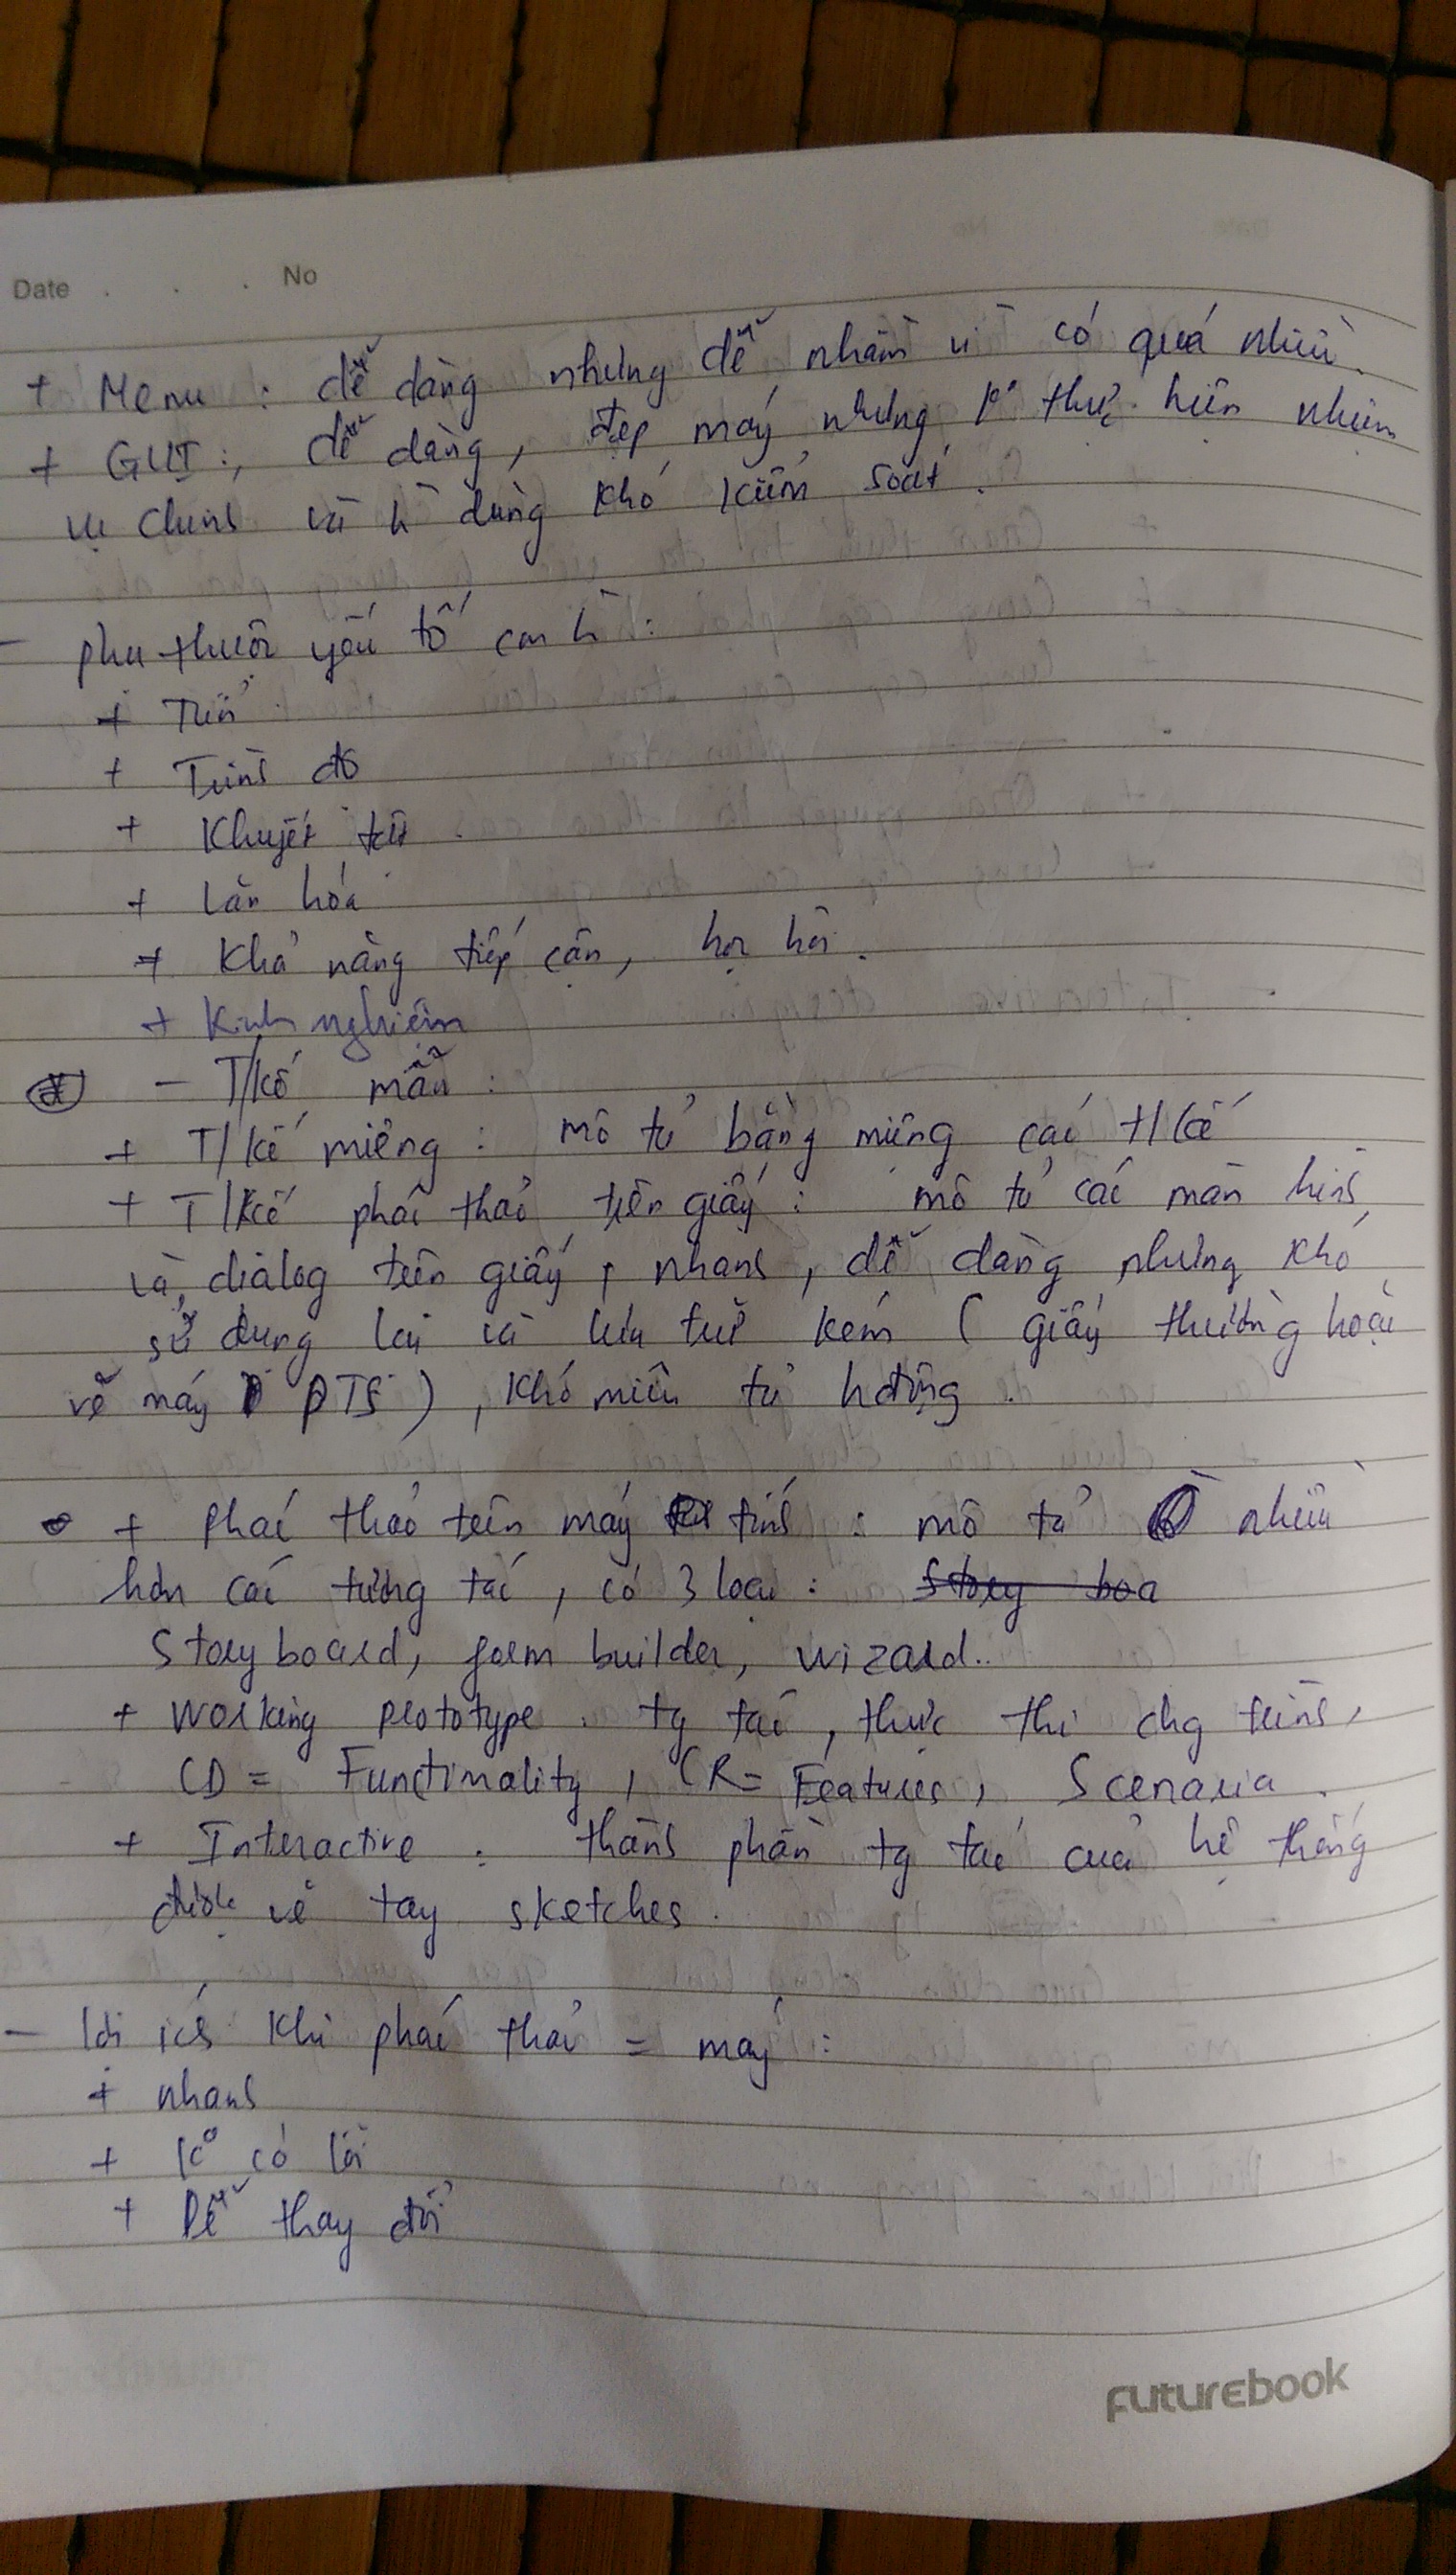 Date . . . No
+ Menu : dễ dàng nhưng dễ nhầm vì có quá nhiều.
+ GUI :, dễ dàng, đẹp mấy nhưng k° thực hiện nhiệm
vụ chính và h` dùng khó kiểm soát.
- phụ thuộc yếu tố con h` :
+ Tuổi
+ Trình độ
+ Khuyết tật
+ Văn hóa
+ Khả năng tiếp cận, học hỏi.
+ Kinh nghiệm
- T/kế mẫu :
+ T/kế miệng : mô tả bằng miệng các t/kế
+ T/kế phác thảo trên giấy : mô tả các màn hình
và dialog trên giấy, nhanh, dễ dàng nhưng khó
sử dụng lại và lưu trữ kém ( giấy thường hoặc
vẽ máy PTS ), khó miêu tả hđộng.
+ phác thảo trên máy tính : mô tả nhiều
hơn các tương tác, có 3 loại : Story boa
Storyboard, form builder, wizard..
+ Working prototype : tg tác, thực thi chg trình,
CD = Functionality, CR = Features, Scenaria.
+ Interactive : thành phần tg tác của hệ thống
được vẽ tay sketches.
- lợi ích khi phác thảo = máy :
+ nhanh
+ k° có lỗi
+ Dễ thay đổi
futurebook